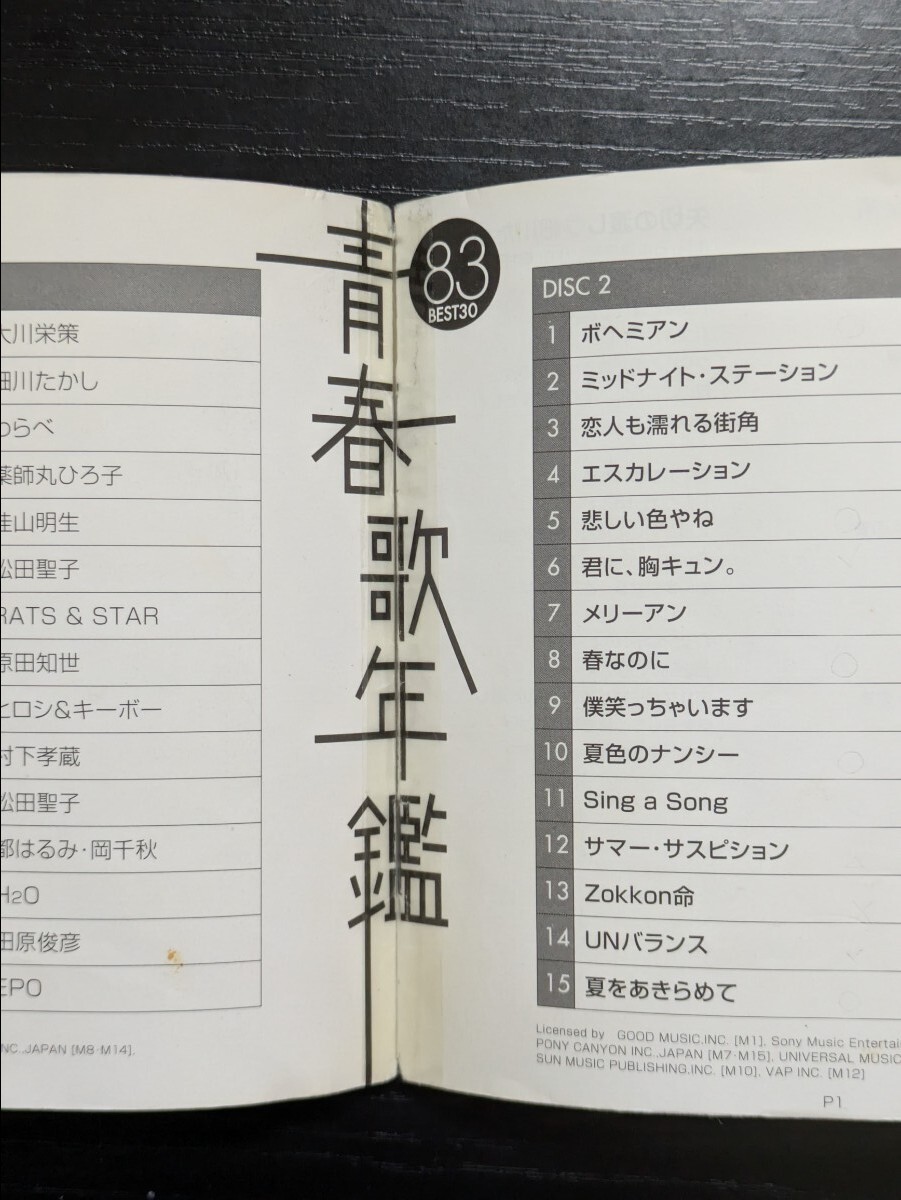 大川栄策
細川たかし
わらべ
薬師丸ひろ子
佳山明生
松田聖子
RATS & STAR
原田知世
ヒロシ&キーボー
村下孝蔵
松田聖子
都はるみ・岡千秋
H2O
田原俊彦
EPO
NC.JAPAN [M8・M14].
青春歌年鑑
83
BEST30
DISC 2
1 ボヘミアン
2 ミッドナイト・ステーション
3 恋人も濡れる街角
4 エスカレーション
5 悲しい色やね
6 君に、胸キュン。
7 メリーアン
8 春なのに
9 僕笑っちゃいます
10 夏色のナンシー
11 Sing a Song
12 サマー・サスピション
13 Zokkon命
14 UNバランス
15 夏をあきらめて
Licensed by GOOD MUSIC,INC. [M1], Sony Music Entertai
PONY CANYON INC.,JAPAN [M7・M15], UNIVERSAL MUSIC
SUN MUSIC PUBLISHING,INC. [M10], VAP INC. [M12]
P1